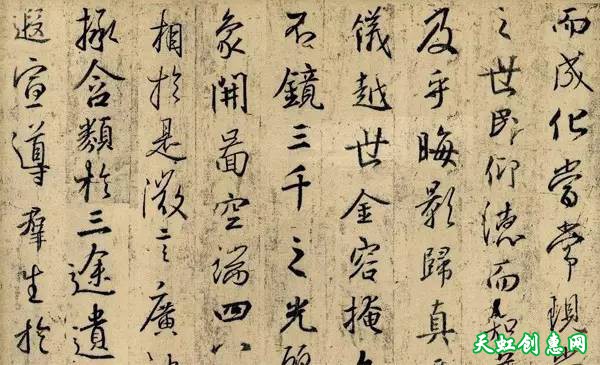 而成化當常現
之世民仰德而知
及乎晦影歸真
儀越世金容掩
不鏡三千之光
象開圖空端四八
相於是微言廣
拯含類於三途遺
遐宣導羣生於
天虹创惠网